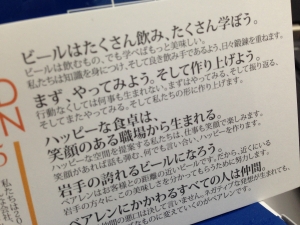 ビールはたくさん飲み、たくさん学ぼう。
ビールは飲むもの、でも学べばもっと美味しい。
私たちは知識を身につけ、そして良き飲み手であるよう、日々鍛錬を重ねます。
まず、やってみよう。そして作り上げよう。
行動なくしては何事も生まれない。まずはやってみる、そして振り返る、
そしてまたやってみる、そして私たちの形に作り上げます。
ハッピーな食卓は、
笑顔のある職場から生まれる。
ハッピーな空間を提案する私たちは、仕事も笑顔で楽しみます。
笑顔があれば話も弾む、何でも言い合い、ハッピーを作ります。
岩手の誇れるビールになろう。
ベアレンはお客様との距離の近いビールです。だから、近くにいる
岩手の方々に、この美味しさを分かってもらうよう努力します。
ベアレンにかかわるすべての人は仲間。
私たちは20